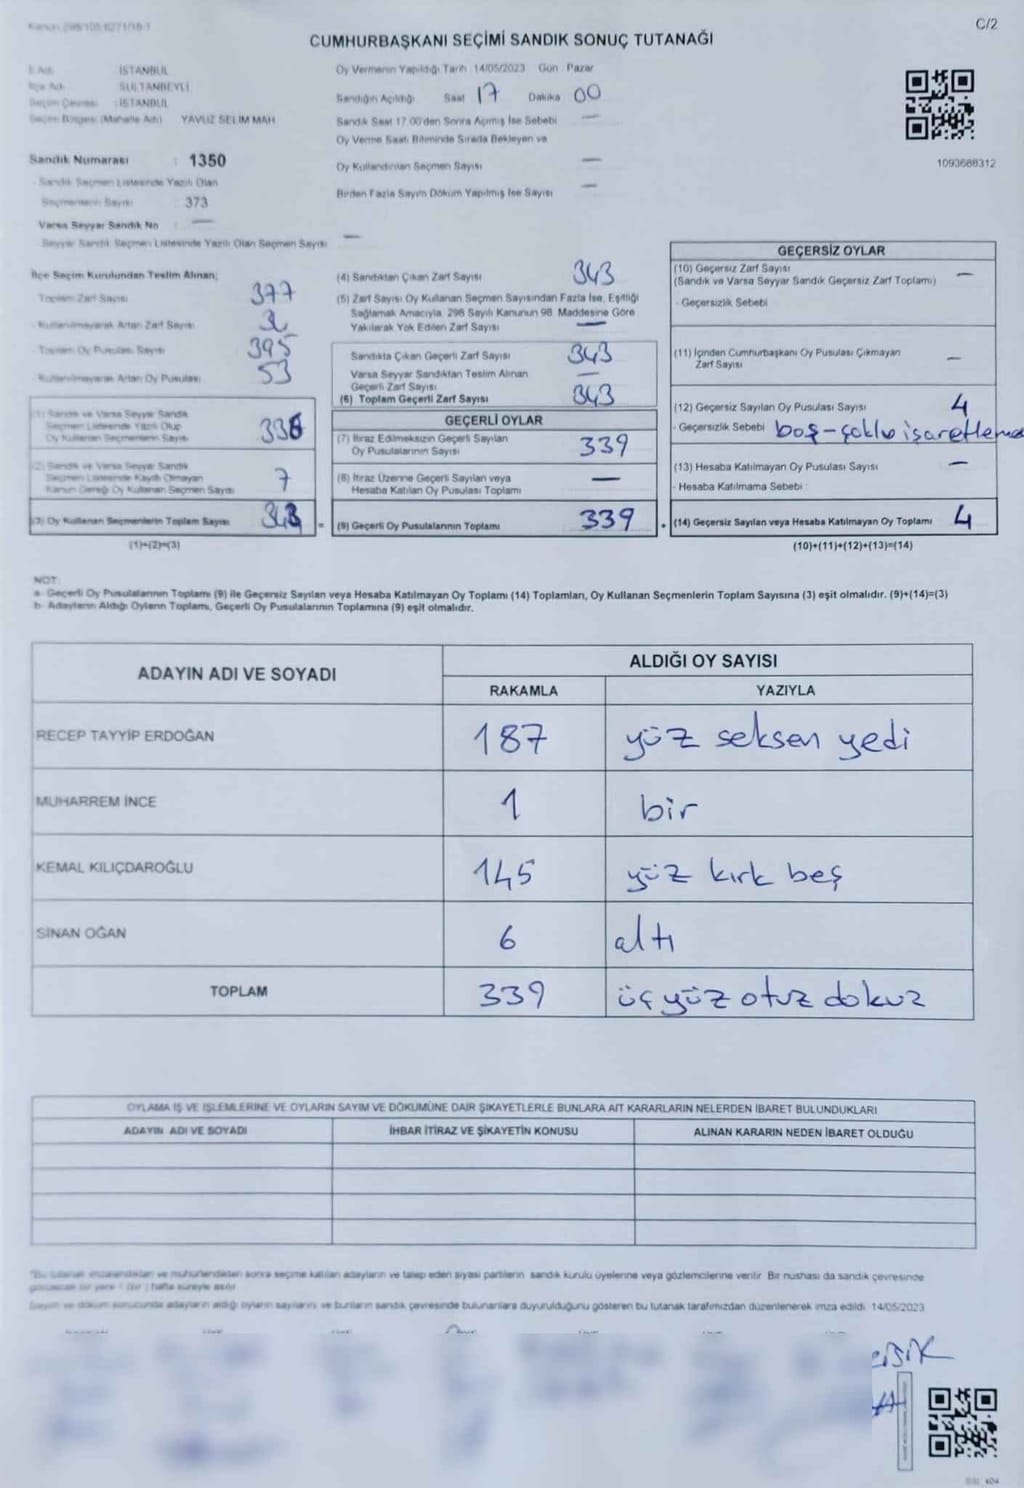 Kanun 298/105-6271/18-1
C/2
CUMHURBAŞKANI SEÇİMİ SANDIK SONUÇ TUTANAĞI
İl Adı : İSTANBUL
İlçe Adı : SULTANBEYLİ
Seçim Çevresi : İSTANBUL
Seçim Bölgesi (Mahalle Adı) YAVUZ SELİM MAH
Sandık Numarası : 1350
- Sandık Seçmen Listesinde Yazılı Olan
Seçmenlerin Sayısı : 373
Varsa Seyyar Sandık No : —
- Seyyar Sandık Seçmen Listesinde Yazılı Olan Seçmen Sayısı —
Oy Vermenin Yapıldığı Tarih :14/05/2023 Gün : Pazar
Sandığın Açıldığı Saat 17 Dakika 00
Sandık Saat 17:00'den Sonra Açmış İse Sebebi —
Oy Verme Saati Bitiminde Sırada Bekleyen ve
Oy Kullandırılan Seçmen Sayısı —
Birden Fazla Sayım Döküm Yapılmış İse Sayısı —
1093688312
İlçe Seçim Kurulundan Teslim Alınan;
- Toplam Zarf Sayısı 377
- Kullanılmayarak Artan Zarf Sayısı
- Toplam Oy Pusulası Sayısı 395
- Kullanılmayarak Artan Oy Pusulası 53
(1) Sandık ve Varsa Seyyar Sandık
Seçmen Listesinde Yazılı Olup
Oy Kullanan Seçmenlerin Sayısı 336
(2) Sandık ve Varsa Seyyar Sandık
Seçmen Listesinde Kayıtlı Olmayan
Kanun Gereği Oy Kullanan Seçmen Sayısı 7
(3) Oy Kullanan Seçmenlerin Toplam Sayısı 343 =
(1)+(2)=(3)
(4) Sandıktan Çıkan Zarf Sayısı 343
(5) Zarf Sayısı Oy Kullanan Seçmen Sayısından Fazla İse, Eşitliği
Sağlamak Amacıyla, 298 Sayılı Kanunun 98. Maddesine Göre
Yakılarak Yok Edilen Zarf Sayısı —
Sandıkta Çıkan Geçerli Zarf Sayısı 343
Varsa Seyyar Sandıktan Teslim Alınan
Geçerli Zarf Sayısı —
(6) Toplam Geçerli Zarf Sayısı 343
GEÇERLİ OYLAR
(7) İtiraz Edilmeksizin Geçerli Sayılan
Oy Pusulalarının Sayısı 339
(8) İtiraz Üzerine Geçerli Sayılan veya
Hesaba Katılan Oy Pusulası Toplamı —
(9) Geçerli Oy Pusulalarının Toplamı 339 +
GEÇERSİZ OYLAR
(10) Geçersiz Zarf Sayısı
(Sandık ve Varsa Seyyar Sandık Geçersiz Zarf Toplamı) —
- Geçersizlik Sebebi
(11) İçinden Cumhurbaşkanı Oy Pusulası Çıkmayan
Zarf Sayısı —
(12) Geçersiz Sayılan Oy Pusulası Sayısı 4
- Geçersizlik Sebebi boş-çoklu işaretleme
(13) Hesaba Katılmayan Oy Pusulası Sayısı —
- Hesaba Katılmama Sebebi
(14) Geçersiz Sayılan veya Hesaba Katılmayan Oy Toplamı 4
(10)+(11)+(12)+(13)=(14)
NOT:
a- Geçerli Oy Pusulalarının Toplamı (9) ile Geçersiz Sayılan veya Hesaba Katılmayan Oy Toplamı (14) Toplamları, Oy Kullanan Seçmenlerin Toplam Sayısına (3) eşit olmalıdır. (9)+(14)=(3)
b- Adayların Aldığı Oyların Toplamı, Geçerli Oy Pusulalarının Toplamına (9) eşit olmalıdır.
ADAYIN ADI VE SOYADI
ALDIĞI OY SAYISI
RAKAMLA YAZIYLA
RECEP TAYYİP ERDOĞAN 187 yüz seksen yedi
MUHARREM İNCE 1 bir
KEMAL KILIÇDAROĞLU 145 yüz kırk beş
SİNAN OĞAN 6 altı
TOPLAM 339 üç yüz otuz dokuz
OYLAMA İŞ VE İŞLEMLERİNE VE OYLARIN SAYIM VE DÖKÜMÜNE DAİR ŞİKAYETLERLE BUNLARA AİT KARARLARIN NELERDEN İBARET BULUNDUKLARI
ADAYIN ADI VE SOYADI İHBAR İTİRAZ VE ŞİKAYETİN KONUSU ALINAN KARARIN NEDEN İBARET OLDUĞU
*Bu tutanak imzalandıktan ve mühürlendikten sonra seçime katılan adayların ve talep eden siyasi partilerin sandık kurulu üyelerine veya gözlemcilerine verilir. Bir nushası da sandık çevresinde
görülecek bir yere 1 (bir) hafta süreyle asılır.
Sayım ve döküm sonucunda adayların aldığı oyların sayılarını ve bunların sandık çevresinde bulunanlara duyurulduğunu gösteren bu tutanak tarafımızdan düzenlenerek imza edildi. 14/05/2023